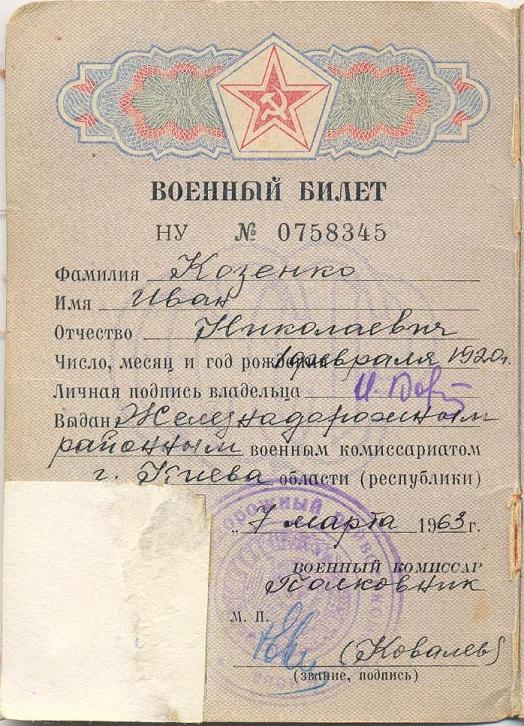 ВОЕННЫЙ БИЛЕТ
НУ № 0758345
Фамилия Козенко
Имя Иван
Отчество Николаевич
Число, месяц и год рождения февраля 1920г.
Личная подпись владельца
Выдан Железнадорожным
районным военным комиссариатом
г. Киева области (республики)
„7 марта 1963 г.
ВОЕННЫЙ КОМИССАР
Полковник
М. П.
(Ковалев)
(звание, подпись)